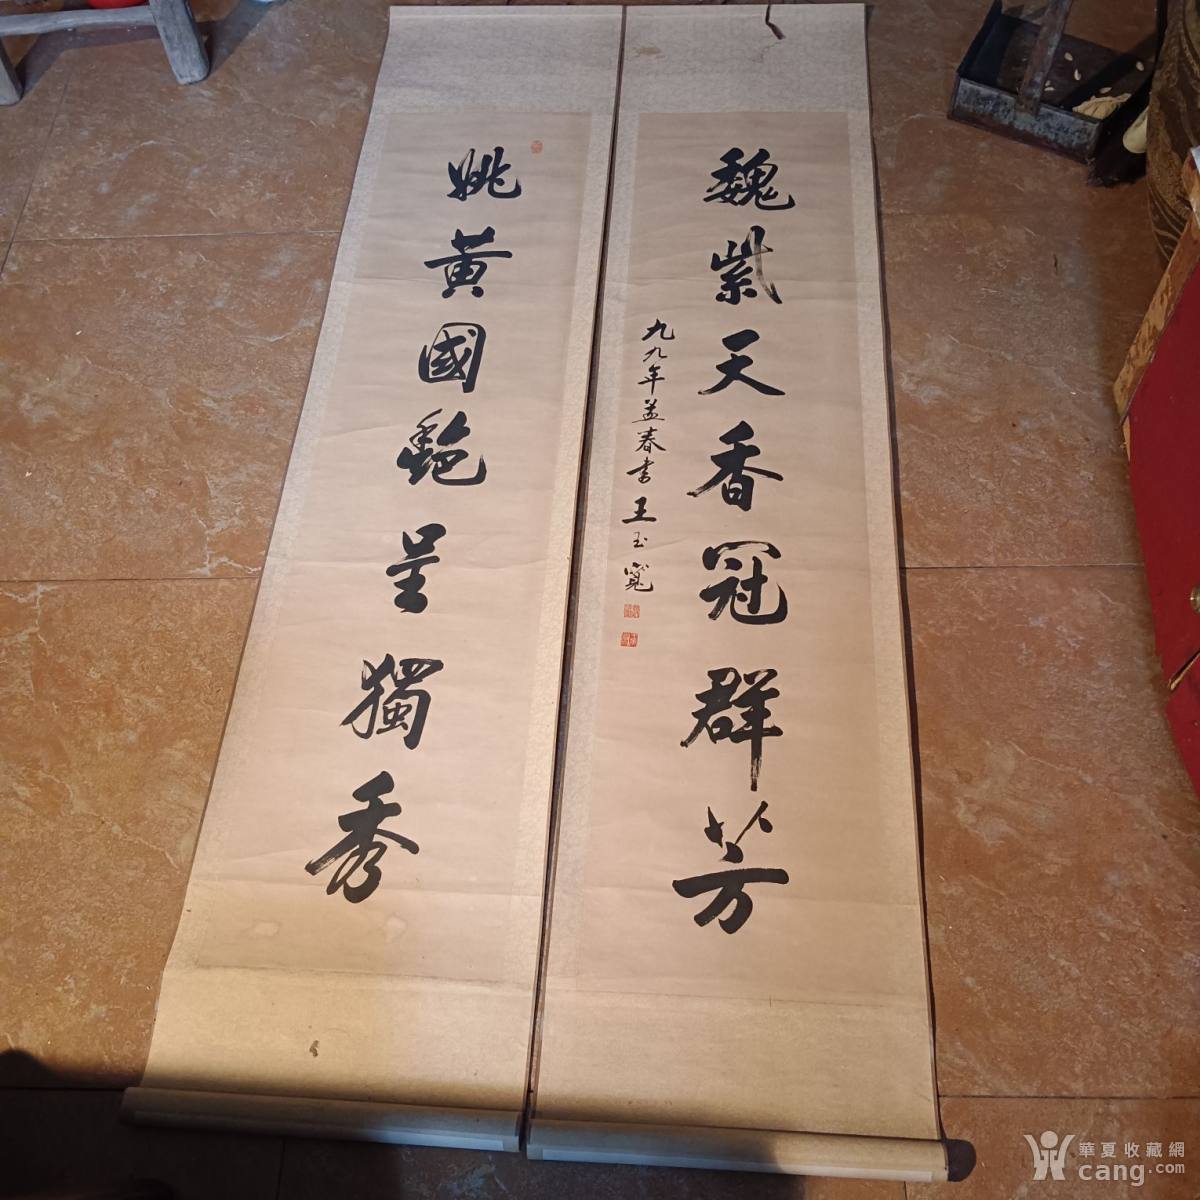 姚黄國艷呈獨秀
魏紫天香冠群芳
九九年益春書王玉寬
華夏收藏網
cang.com